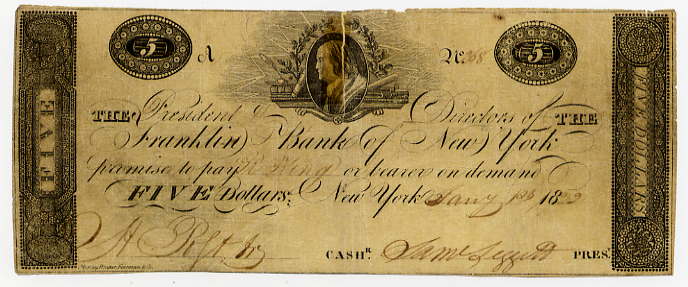 5 A No. 5
THE President & Directors of THE
Franklin Bank of New York
promise to pay R King or bearer on demand
FIVE Dollars, New York Jany 1st 18
CASHR. Saml Leggett PRES.
FIVE
FIVE DOLLARS